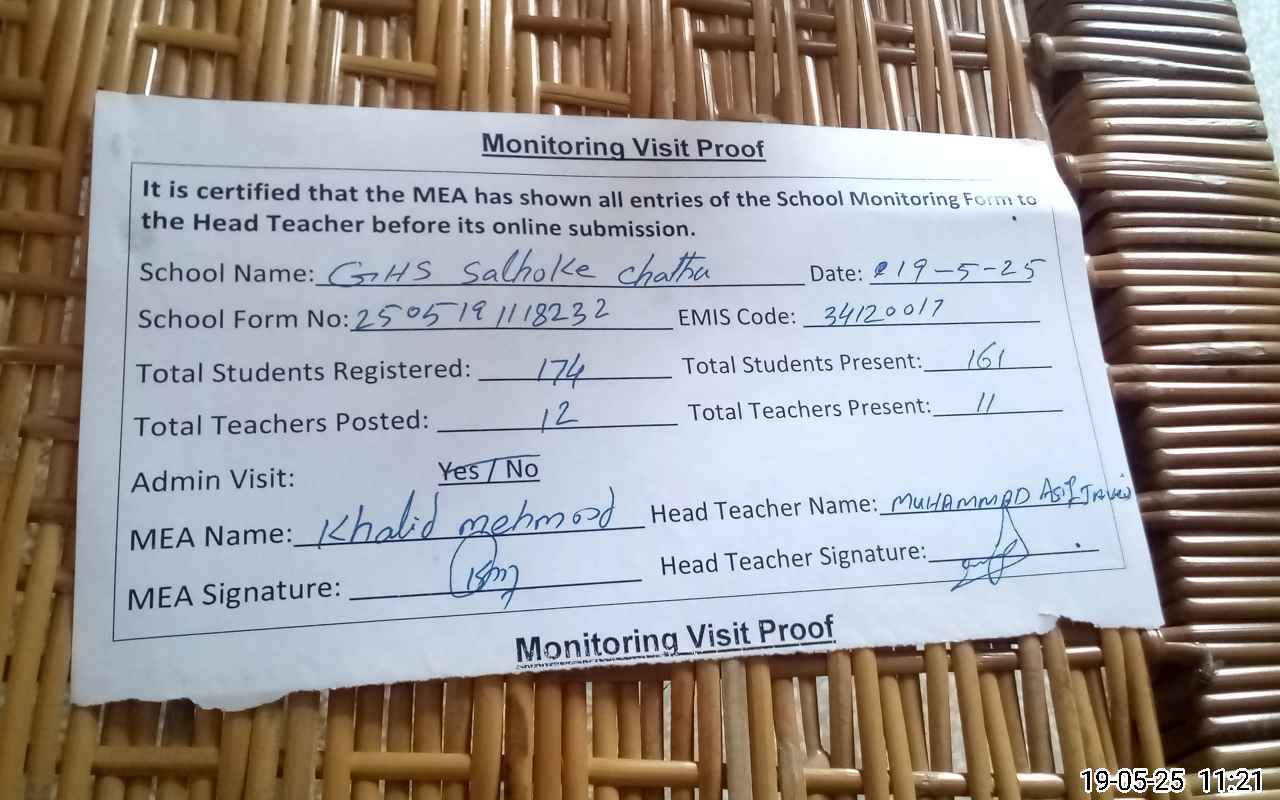 Monitoring Visit Proof
It is certified that the MEA has shown all entries of the School Monitoring Form to
the Head Teacher before its online submission.
School Name: GHS Salhoke Chatha Date: 19-5-25
School Form No: 2505191118232 EMIS Code: 34120017
Total Students Registered: 174 Total Students Present: 161
Total Teachers Posted: 12 Total Teachers Present: 11
Admin Visit: Yes / No
MEA Name: Khalid mehmood Head Teacher Name: MUHAMMAD Asif Javed
MEA Signature: Head Teacher Signature:
Monitoring Visit Proof
19-05-25 11:21